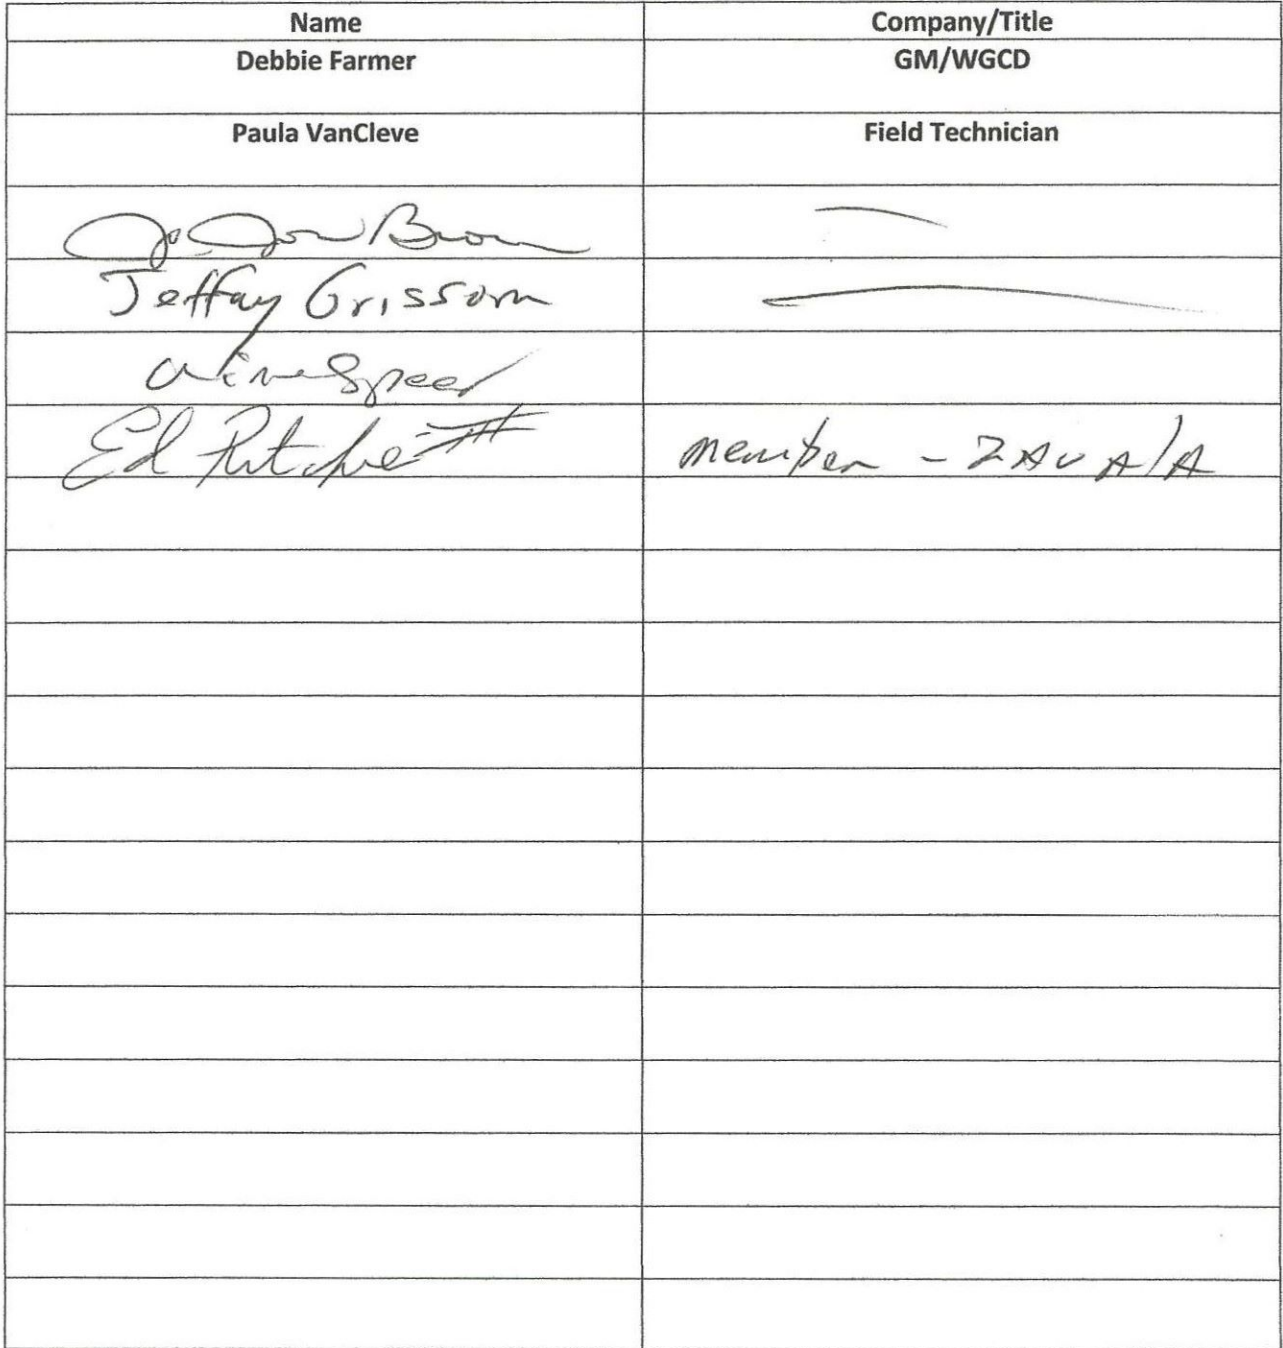 Name Company/Title
Debbie Farmer GM/WGCD
Paula VanCleve Field Technician
Jo. Jon Brown
Jeffay Grissom
Speer
Ed member - ZAVALA